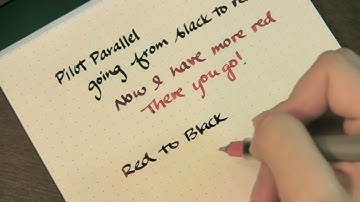 Pilot Parallel
going from black to re
Now I have more red
There you go!
Red to Black